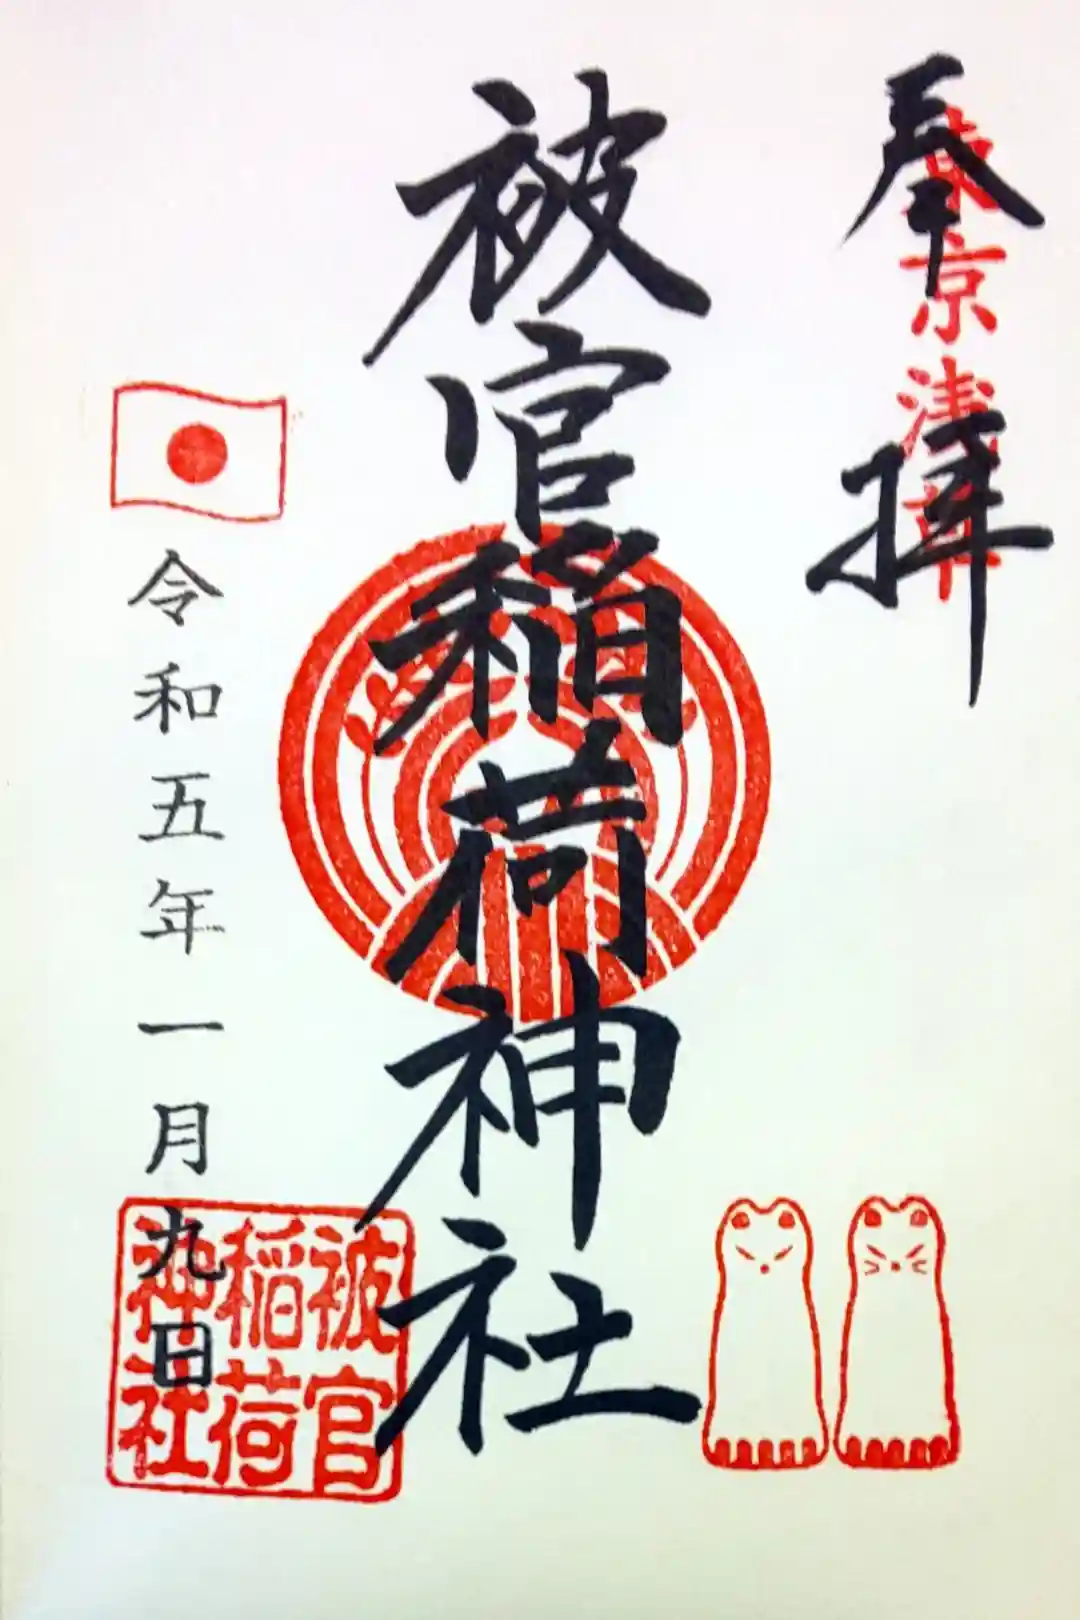 奉拝
東京浅草
被官稲荷神社
令和五年一月九日
被官
稲荷
神社